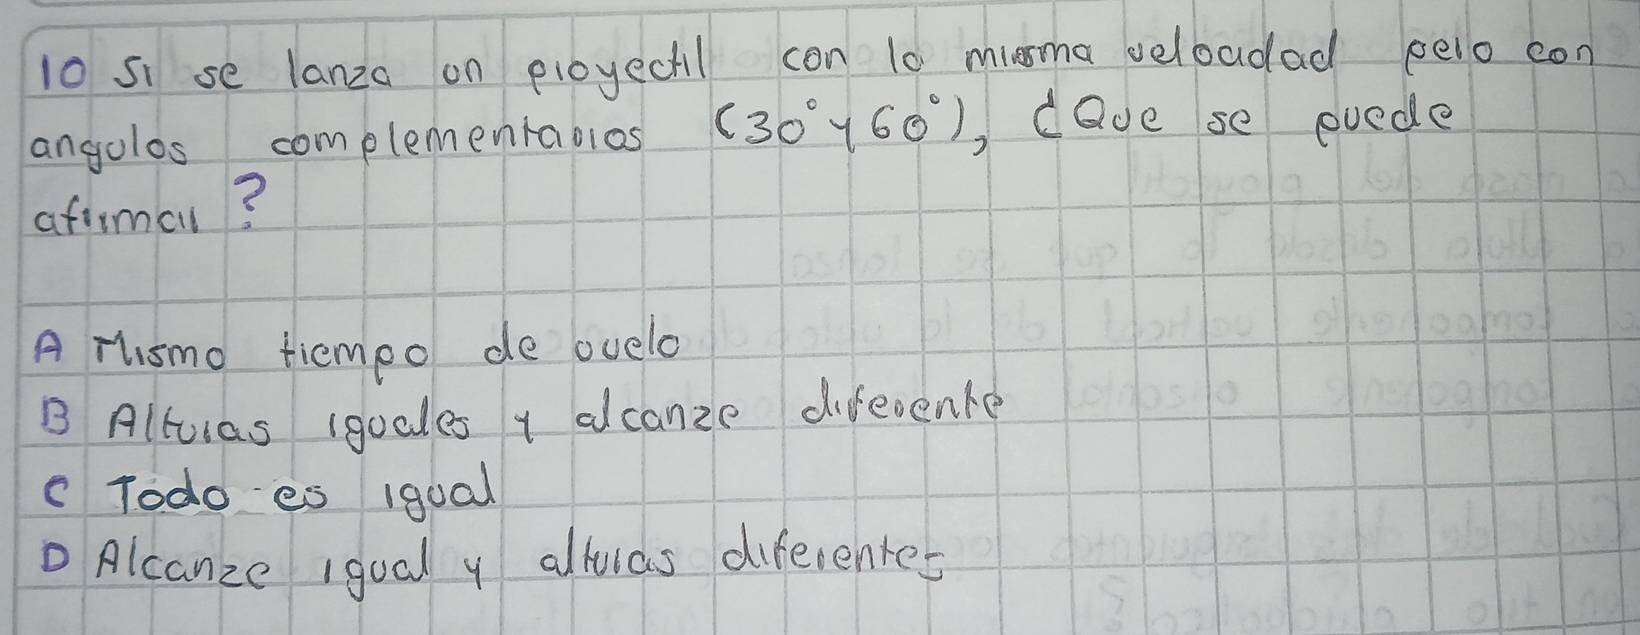 10 Si se lanza un proyectil con la misma velocidad pero con
angulos complementarios (30° y 60°), ¿Que se puede
afirmar?
A Mismo tiempo de vuelo
B Alturas iguales y alcanze diferente
C Todo es igual
D Alcanze igual y alturas diferentes